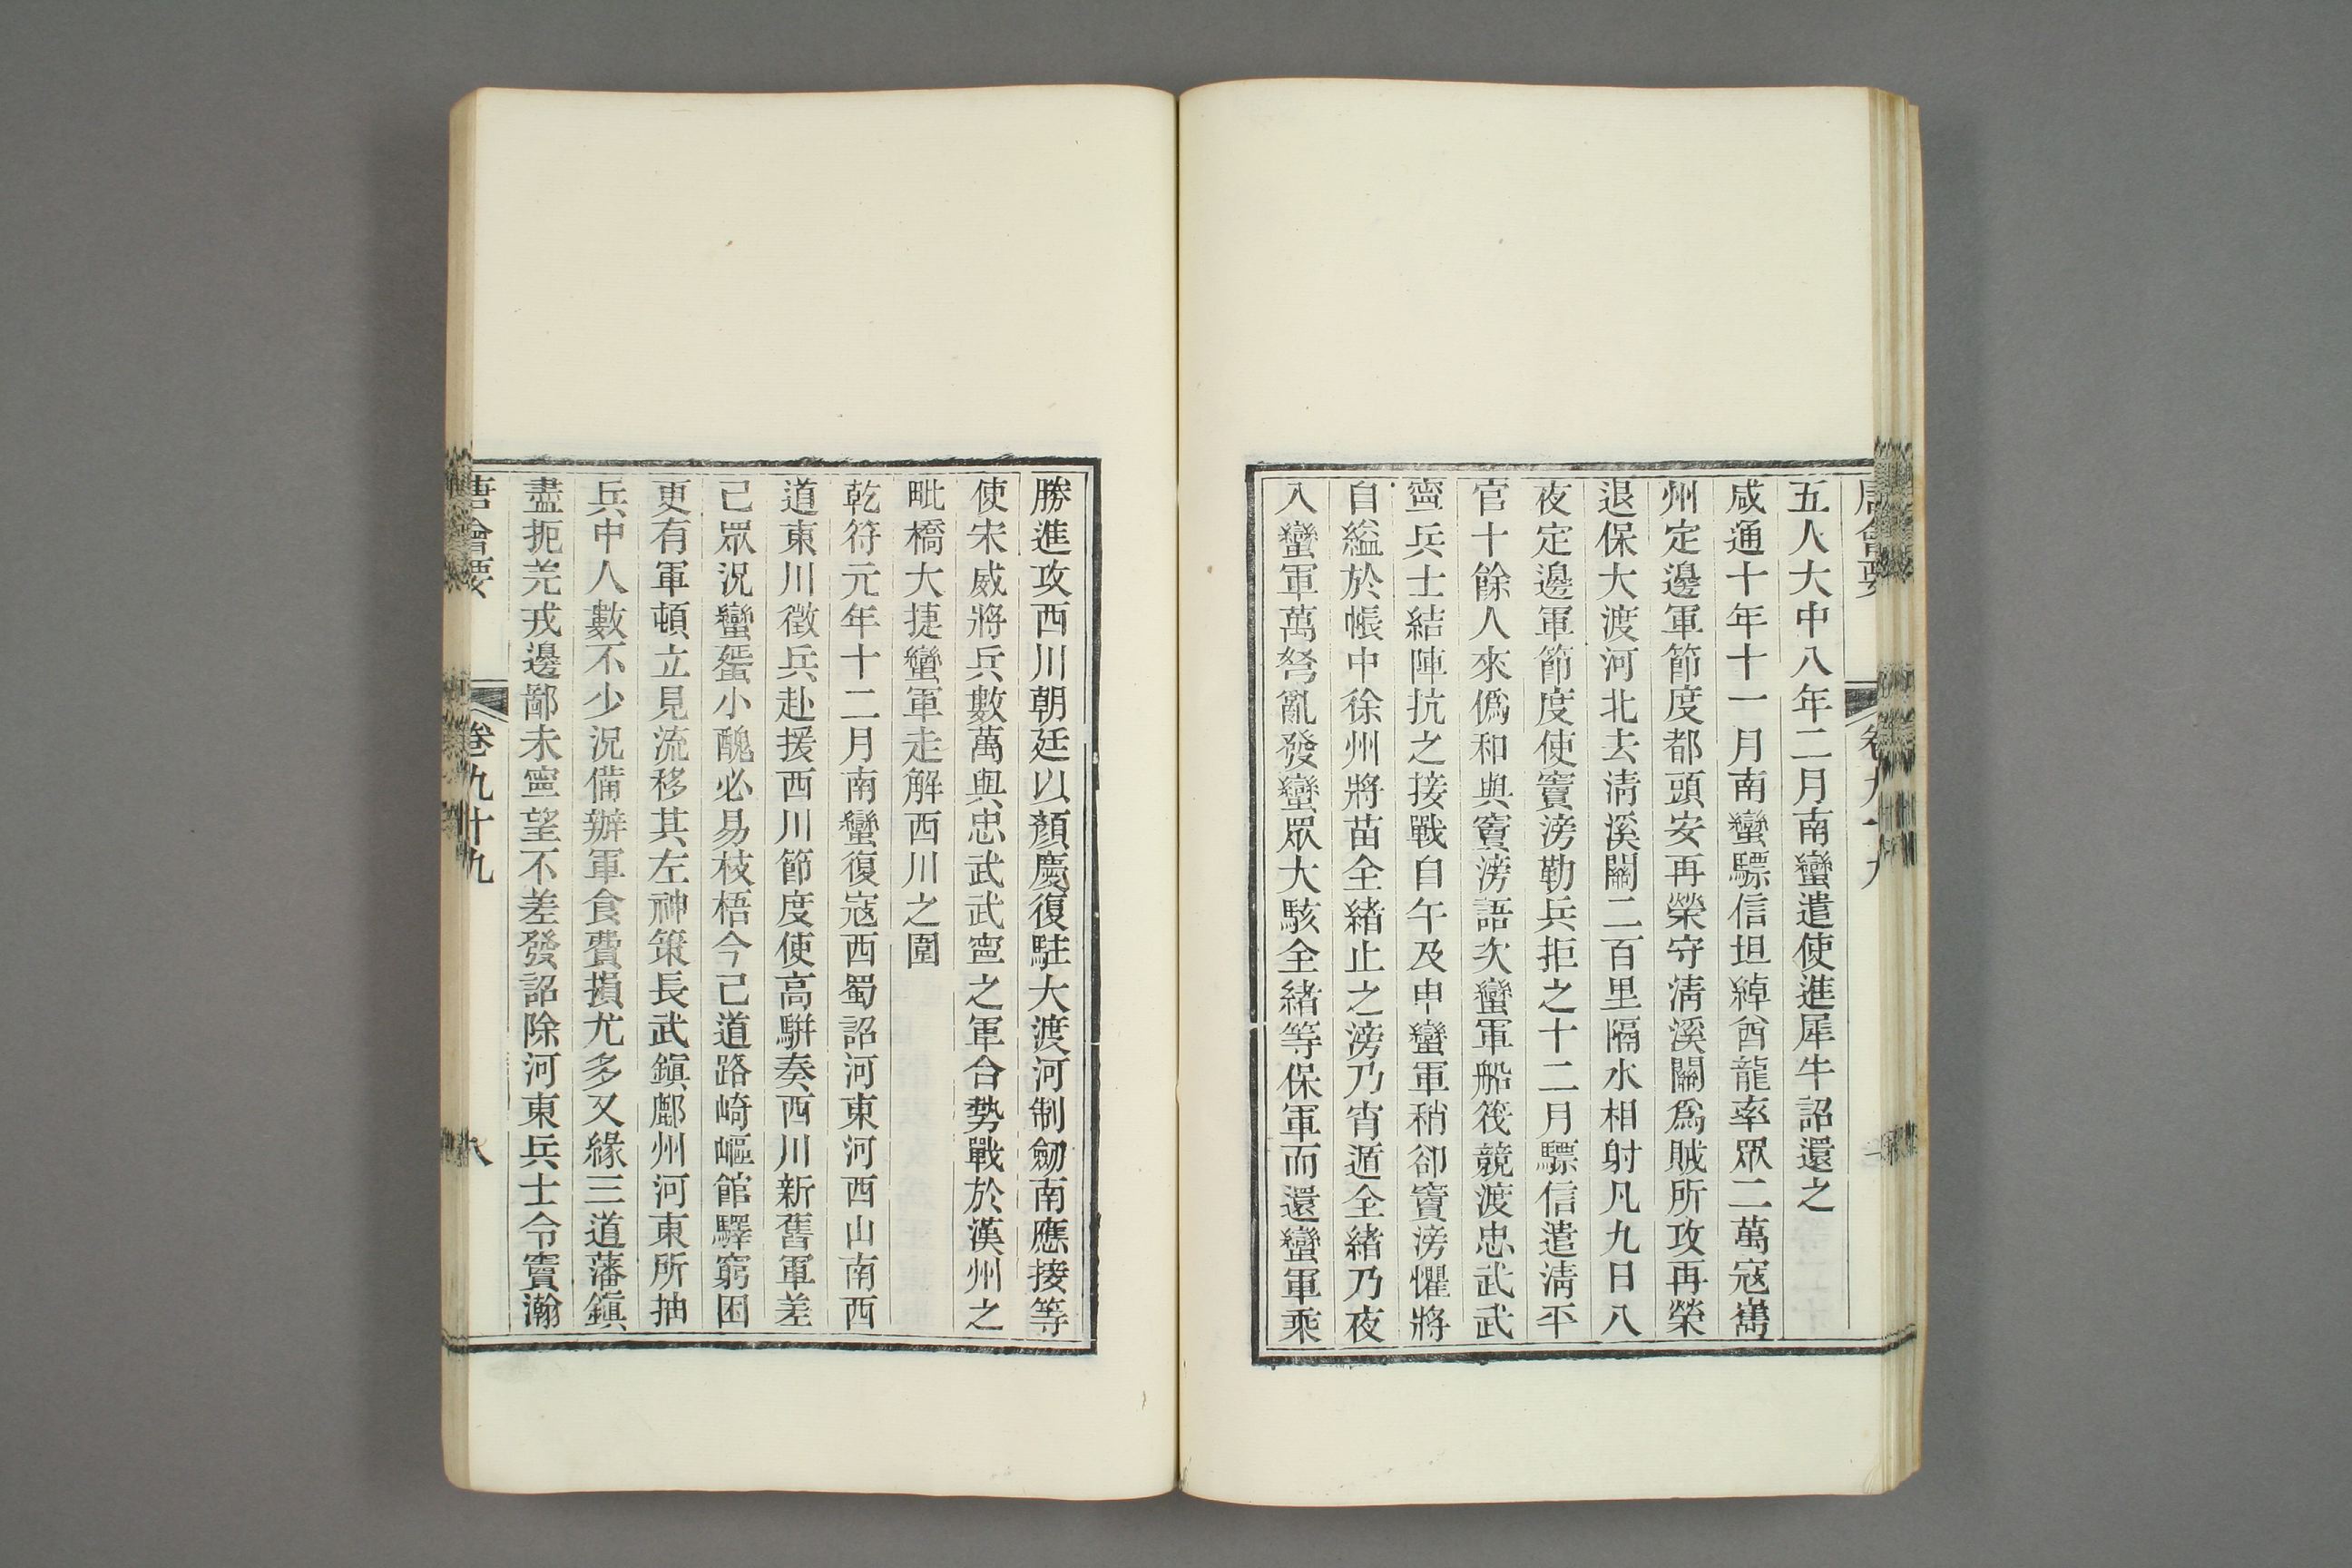 五人大中八年二月南蠻遣使進犀牛詔還之
咸通十年十一月南蠻驃信坦綽酋龍率眾二萬寇巂
州定邊軍節度都頭安再榮守淸溪關爲賊所攻再榮
退保大渡河北去淸溪關二百里隔水相射凡九日八
夜定邊軍節度使竇滂勒兵拒之十二月驃信遣淸平
官十餘人來僞和與竇滂語次蠻軍船筏競渡忠武武
寧兵士結陣抗之接戰自午及申蠻軍稍卻竇滂懼將
自縊於帳中徐州將苗全緒止之滂乃宵遁全緒乃夜
入蠻軍萬弩亂發蠻眾大駭全緒等保軍而還蠻軍乘
勝進攻西川朝廷以顏慶復駐大渡河制劒南應接等
使宋威將兵數萬與忠武武寧之軍合勢戰於漢州之
毗橋大捷蠻軍走解西川之圍
乾符元年十二月南蠻復寇西蜀詔河東河西山南西
道東川徵兵赴援西川節度使高駢奏西川新舊軍差
已眾況蠻蜑小醜必易枝梧今已道路崎嶇館驛窮困
更有軍頓立見流移其左神策長武鎭鄜州河東所抽
兵中人數不少況備辦軍食費損尤多又緣三道藩鎭
盡扼羌戎邊鄙未寧望不差發詔除河東兵士令竇瀚
唐會要 卷九十九 八